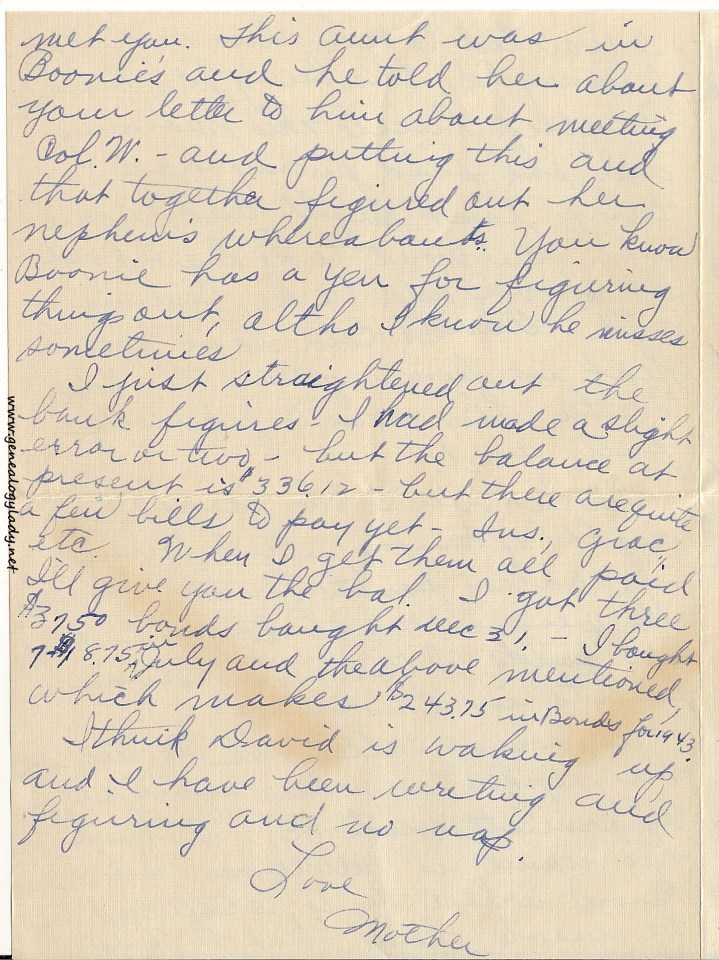 met you. This aunt was in
Boonie's and he told her about
your letter to him about meeting
Col. W. - and putting this and
that together figured out her
nephew's whereabouts. You know
Boonie has a yen for figuring
things out, altho I know he misses
sometimes
I just straightened out the
bank figures - I had made a slight
error or two - but the balance at
present is $336.12 - but there are quite
a few bills to pay yet - Ins., Groc.,
etc. When I get them all paid
I'll give you the bal. I got three
$37.50 bonds bought Dec 31, - I bought
7 - 18.75 in July and the above mentioned,
which makes $243.75 in Bonds for 1943.
I think David is waking up,
and I have been writing and
figuring and no nap.
Love
Mother
www.genealogylady.net